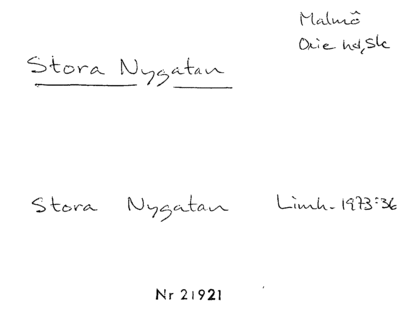 Malmö
Oxie hd, Sk
Stora Nygatan
Stora Nygatan Limh. 1973:36
Nr 21921